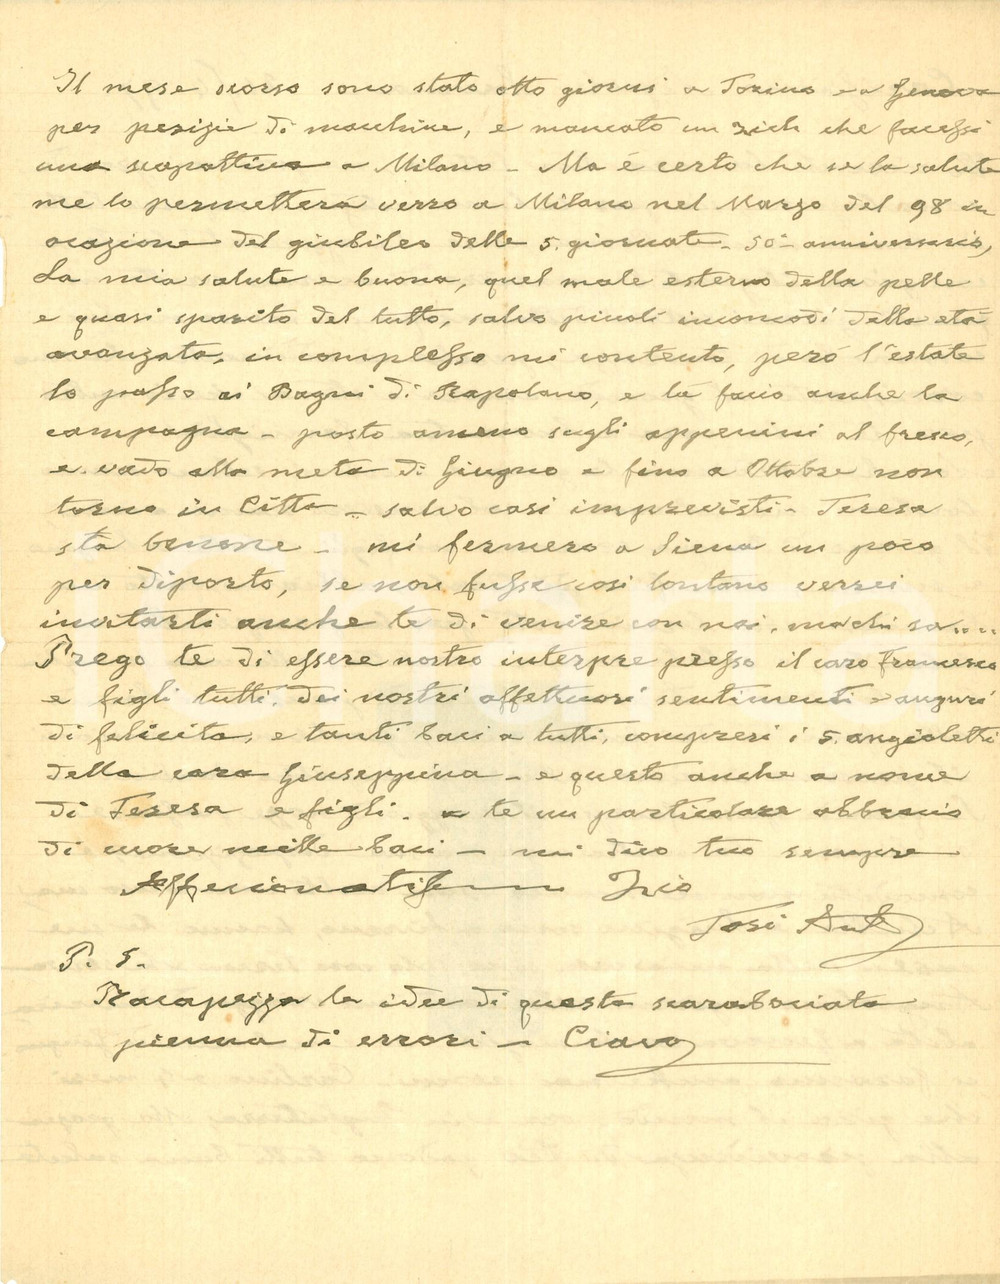 Il mese scorso sono stato otto giorni a Torino e a Genova
per perizie di macchine, e mancato un zich che facessi
una scapattina a Milano - Ma é certo che se la salute
me lo permettera verro a Milano nel Marzo del 98 in
ocazione del giubileo delle 5. giornate - 50° anniversario,
La mia salute e buona, quel male esterno della pelle
e quasi sparito del tutto, salvo picoli incomodi della etá
avanzata, in complesso mi contento, peró l'estate
lo passo ai Bagni di Rapolano, e lá facio anche la
campagna - posto ameno sugli appenini al fresco,
e vado alla metá di Giugno e fino a Ottobre non
torno in Citta - salvo casi imprevisti - Teresa
sta benone - mi fermero a Siena un poco
per diporto, se non fusse cosi lontano verrei
invitarti anche te di venire con noi, ma chi sa....
Prego te di essere nostro interpre presso il caro Francesco
e figli tutti, dei nostri affettuosi sentimenti e auguri
di felicita, e tanti baci a tutti, compresi i 5. angioletti
della cara Giuseppina - e questo anche a nome
di Teresa e figli - a te un particolare abbracio
di cuore mille baci - mi dico tuo sempre
Zio
Tosi
P. S.
Racapezza le idee di questa scarabociata
pienna di errori - Ciavo